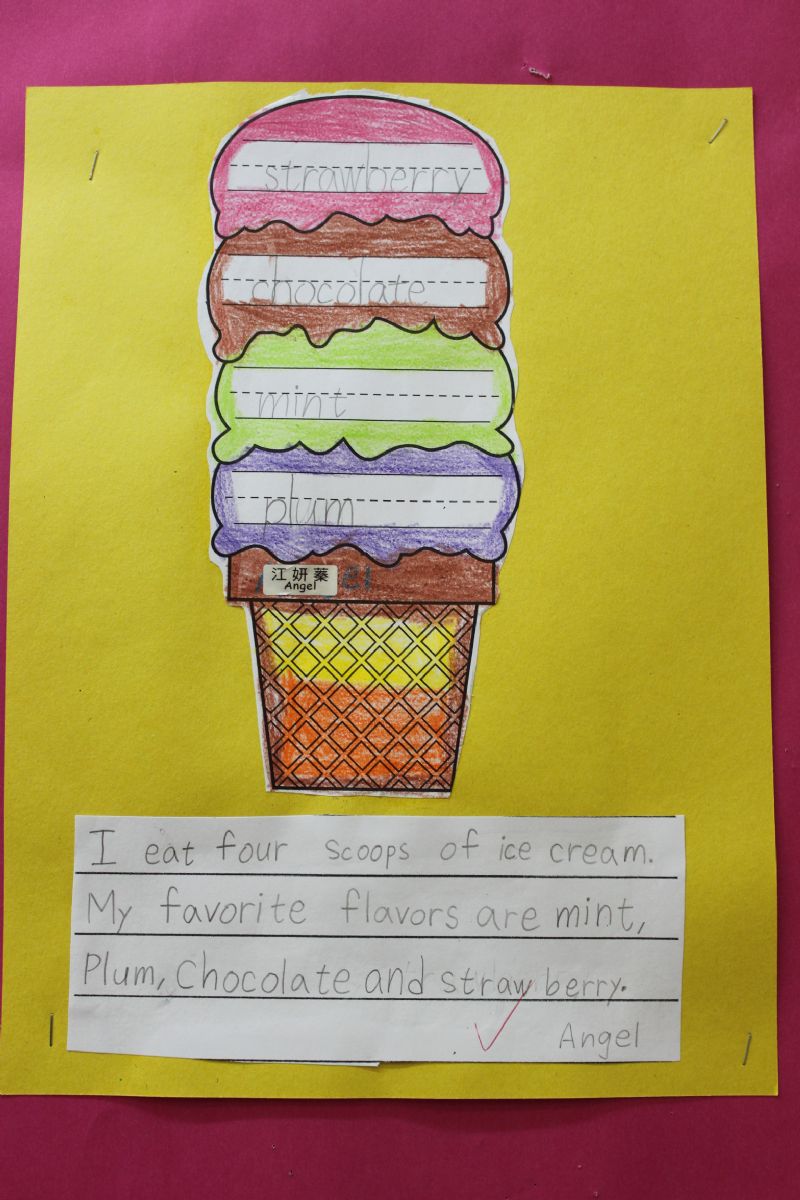 strawberry
chocolate
mint
plum
江妍蓁
Angel
I eat four scoops of ice cream.
My favorite flavors are mint,
Plum, Chocolate and straw berry.
Angel